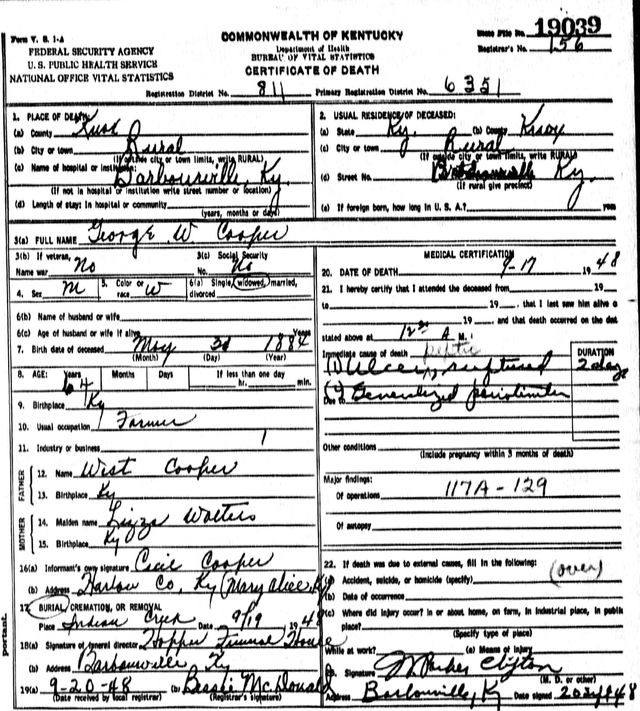 Form V. S. 1-A
FEDERAL SECURITY AGENCY
U. S. PUBLIC HEALTH SERVICE
NATIONAL OFFICE VITAL STATISTICS
COMMONWEALTH OF KENTUCKY
Department of Health
BUREAU OF VITAL STATISTICS
CERTIFICATE OF DEATH
State File No. 19039
Registrar's No. 156
Registration District No. 811 Primary Registration District No. 6351
1. PLACE OF DEATH
(a) County Knox
(b) City or town Rural
(If outside city or town limits, write RURAL)
(c) Name of hospital or institution:
Barbourville, Ky.
(If not in hospital or institution write street number or location)
(d) Length of stay: In hospital or community
(years, months or days)
2. USUAL RESIDENCE OF DECEASED:
(a) State Ky. (b) County Knox
(c) City or town Rural
(If outside city or town limits, write RURAL)
(d) Street No. Barbourville Ky.
(If rural give precinct)
(e) If foreign born, how long in U. S. A.? years
3(a) FULL NAME George W. Cooper
3(b) If veteran, Name war No
3(c) Social Security No. No
4. Sex M 5. Color or race W 6(a) Single, widowed, married, divorced
6(b) Name of husband or wife
6(c) Age of husband or wife if alive Years
7. Birth date of deceased May 31 1884
(Month) (Day) (Year)
8. AGE: Years 64 Months Days If less than one day hr. min.
9. Birthplace Ky
10. Usual occupation Farmer
11. Industry or business
FATHER
12. Name West Cooper
13. Birthplace Ky
MOTHER
14. Maiden name Lizza Walters
15. Birthplace Ky
16(a) Informant's own signature Cecil Cooper
(b) Address Harlow Co, Ky (Mary Alice, Ky)
17. BURIAL, CREMATION, OR REMOVAL
Place Indian Creek Date 9/19 1948
18(a) Signature of funeral director Hopper Funeral House
(b) Address Barbourville Ky
19(a) 9-20-48 (b) Bessie McDonald
(Date received by local registrar) (Registrar's signature)
MEDICAL CERTIFICATION
20. DATE OF DEATH 9-17 1948
21. I hereby certify that I attended the deceased from
to 19, that I last saw him alive o
19, and that death occurred on the dat
stated above at 12 A M.
Immediate cause of death peptic
(1) Ulcer, ruptured
DURATION
2 days
Due to Generalized peritonitis
Other conditions
(Include pregnancy within 3 months of death)
Major findings:
Of operations 117A-129
Of autopsy
22. If death was due to external causes, fill in the following:
(over)
(a) Accident, suicide, or homicide (specify)
(b) Date of occurrence
(c) Where did injury occur? in or about home, on farm, in industrial place, in public
place?
(Specify type of place)
While at work? (e) Means of injury
Signature Parker Clifton
(M. D. or other)
Address Barbourville, Ky Date signed 20 1948
portant.